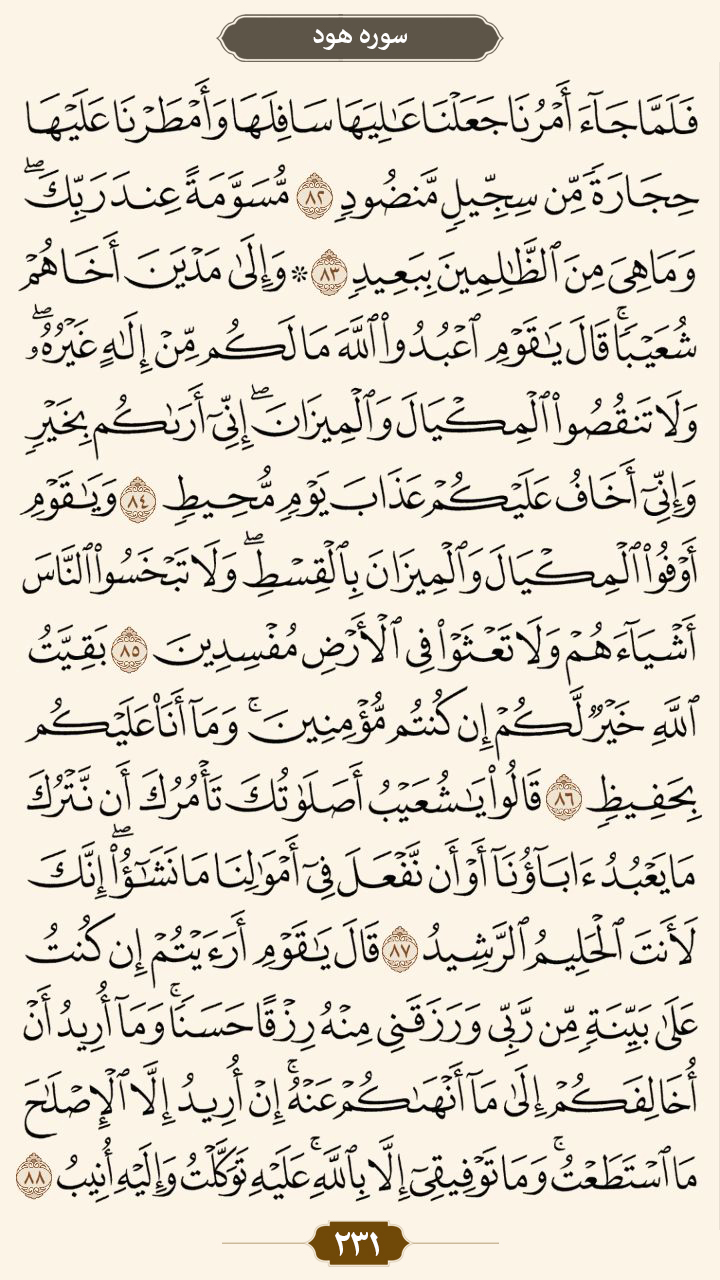 سوره هود
فَلَمَّا جَآءَ أَمْرُنَا جَعَلْنَا عَٰلِيَهَا سَافِلَهَا وَأَمْطَرْنَا عَلَيْهَا
حِجَارَةٗ مِّن سِجِّيلٖ مَّنضُودٖ ٨٢ مُّسَوَّمَةً عِندَ رَبِّكَۖ
وَمَا هِيَ مِنَ ٱلظَّٰلِمِينَ بِبَعِيدٖ ٨٣ ۞ وَإِلَىٰ مَدْيَنَ أَخَاهُمْ
شُعَيْبٗاۚ قَالَ يَٰقَوْمِ ٱعْبُدُواْ ٱللَّهَ مَا لَكُم مِّنْ إِلَٰهٍ غَيْرُهُۥۖ
وَلَا تَنقُصُواْ ٱلْمِكْيَالَ وَٱلْمِيزَانَۖ إِنِّيٓ أَرَىٰكُم بِخَيْرٖ
وَإِنِّيٓ أَخَافُ عَلَيْكُمْ عَذَابَ يَوْمٖ مُّحِيطٖ ٨٤ وَيَٰقَوْمِ
أَوْفُواْ ٱلْمِكْيَالَ وَٱلْمِيزَانَ بِٱلْقِسْطِۖ وَلَا تَبْخَسُواْ ٱلنَّاسَ
أَشْيَآءَهُمْ وَلَا تَعْثَوْاْ فِي ٱلْأَرْضِ مُفْسِدِينَ ٨٥ بَقِيَّتُ
ٱللَّهِ خَيْرٞ لَّكُمْ إِن كُنتُم مُّؤْمِنِينَۚ وَمَآ أَنَا۠ عَلَيْكُم
بِحَفِيظٖ ٨٦ قَالُواْ يَٰشُعَيْبُ أَصَلَوٰتُكَ تَأْمُرُكَ أَن نَّتْرُكَ
مَا يَعْبُدُ ءَابَآؤُنَآ أَوْ أَن نَّفْعَلَ فِيٓ أَمْوَٰلِنَا مَا نَشَٰٓؤُاْۖ إِنَّكَ
لَأَنتَ ٱلْحَلِيمُ ٱلرَّشِيدُ ٨٧ قَالَ يَٰقَوْمِ أَرَءَيْتُمْ إِن كُنتُ
عَلَىٰ بَيِّنَةٖ مِّن رَّبِّي وَرَزَقَنِي مِنْهُ رِزْقًا حَسَنٗاۚ وَمَآ أُرِيدُ أَنْ
أُخَالِفَكُمْ إِلَىٰ مَآ أَنْهَىٰكُمْ عَنْهُۚ إِنْ أُرِيدُ إِلَّا ٱلْإِصْلَٰحَ
مَا ٱسْتَطَعْتُۚ وَمَا تَوْفِيقِيٓ إِلَّا بِٱللَّهِۚ عَلَيْهِ تَوَكَّلْتُ وَإِلَيْهِ أُنِيبُ ٨٨
٢٣١